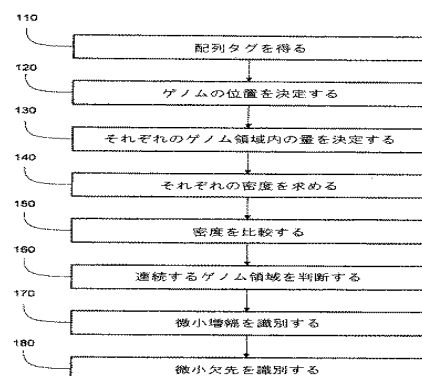 110
配列タグを得る
120
ゲノムの位置を決定する
130
それぞれのゲノム領域内の量を決定する
140
それぞれの密度を求める
150
密度を比較する
160
連続するゲノム領域を判断する
170
微小増幅を識別する
180
微小欠失を識別する